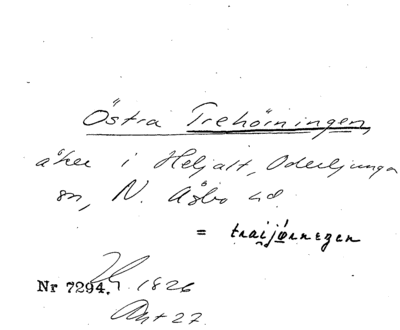 Östra Trehörningen,
åker i Heljalt, Oderljunga
sn, N. Åsbo hd.
= traijørnegen
Nr 7294. 1826
Akt 27.